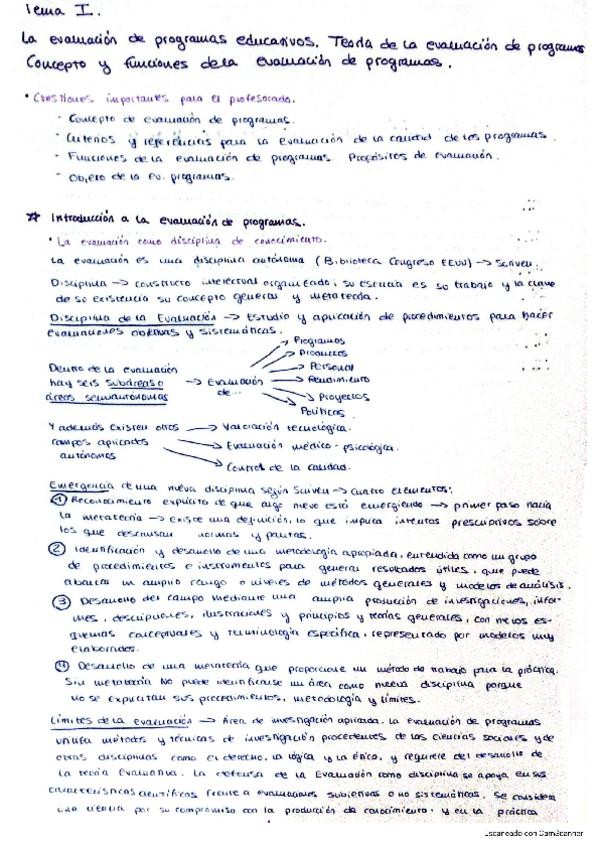 Tema I.
La evaluación de programas educativos. Teoría de la evaluación de programas
Concepto y funciones de la evaluación de programas.
• Cuestiones importantes para el profesorado.
- Concepto de evaluación de programas.
- Criterios y referencias para la evaluación de la calidad de los programas.
- Funciones de la evaluación de programas. Propósitos de evaluación.
- Objeto de la ev. programas.
Introducción a la evaluación de programas.
• La evaluación como disciplina de conocimiento.
La evaluación es una disciplina autónoma (Biblioteca Congreso EEUU) → Scriven.
Disciplina → constructo intelectual organizado, su esencia es su trabajo y la clave
de su existencia su concepto general y metateoría.
Disciplina de la Evaluación → Estudio y aplicación de procedimientos para hacer
evaluaciones objetivas y sistemáticas.
Dentro de la evaluación
hay seis subáreas o
áreas semiautónomas
→ Evaluación
de...
→ Programas
→ Productos
→ Personal
→ Rendimiento
→ Proyectos
Políticas
Y además existen otros
campos aplicados
autónomos
→ Valoración tecnológica.
→ Evaluación médico-psicológica.
→ Control de la calidad.
Emergencia de una nueva disciplina según Scriven → cuatro elementos:
① Reconocimiento explícito de que algo nuevo está emergiendo → primer paso hacia
la metateoría → existe una definición, lo que implica intentos prescriptivos sobre
los que descansan normas y pautas.
② Identificación y desarrollo de una metodología apropiada, entendida como un grupo
de procedimientos e instrumentos para generar resultados útiles, que puede
abarcar un amplio rango o niveles de métodos generales y modelos de análisis.
③ Desarrollo del campo mediante una amplia producción de investigaciones, infor-
mes, descripciones, ilustraciones y principios y teorías generales, con nuevos es-
quemas conceptuales y terminología específica, representado por modelos muy
elaborados.
④ Desarrollo de una metateoría que proporcione un método de trabajo para la práctica.
Sin metateoría No puede identificarse un área como nueva disciplina porque
no se explicitan sus procedimientos, metodología y límites.
Límites de la evaluación → Área de investigación aplicada. La evaluación de programas
utiliza métodos y técnicas de investigación procedentes de las ciencias sociales y de
otras disciplinas como el derecho, la lógica y la ética, y requiere del desarrollo de
la teoría Evaluativa. La defensa de la Evaluación como disciplina se apoya en sus
características científicas frente a evaluaciones subjetivas o no sistemáticas. Se considera
una ciencia por su compromiso con la producción de conocimiento y en la práctica
Escaneado con CamScanner